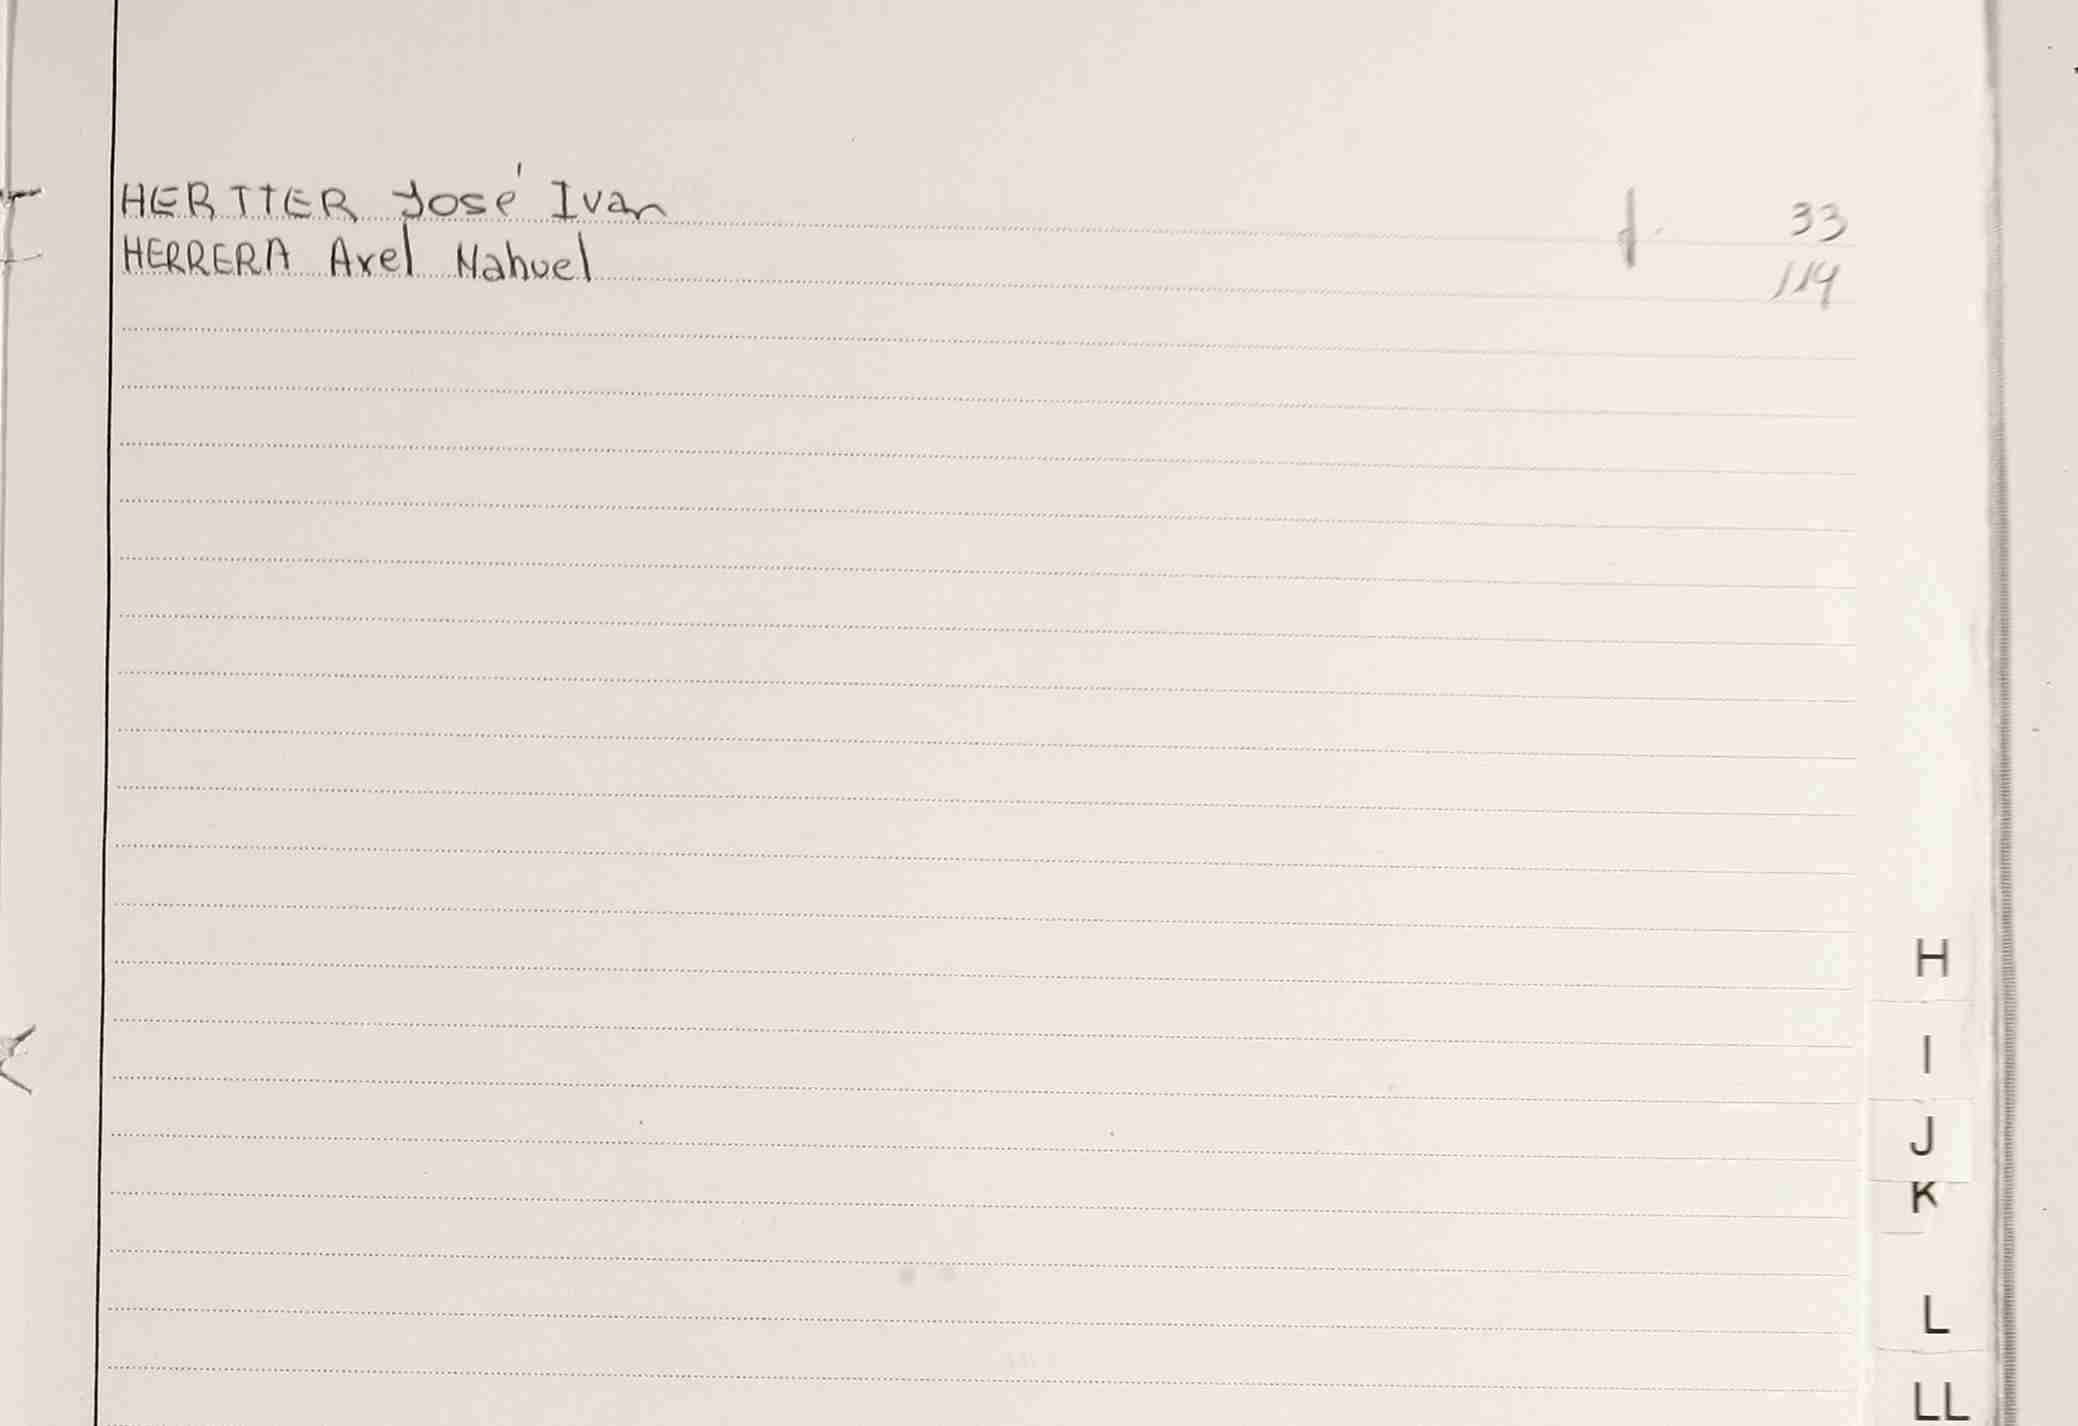 HERTTER José Ivan f. 33
HERRERA Axel Nahuel 114
H
I
J
K
L
LL